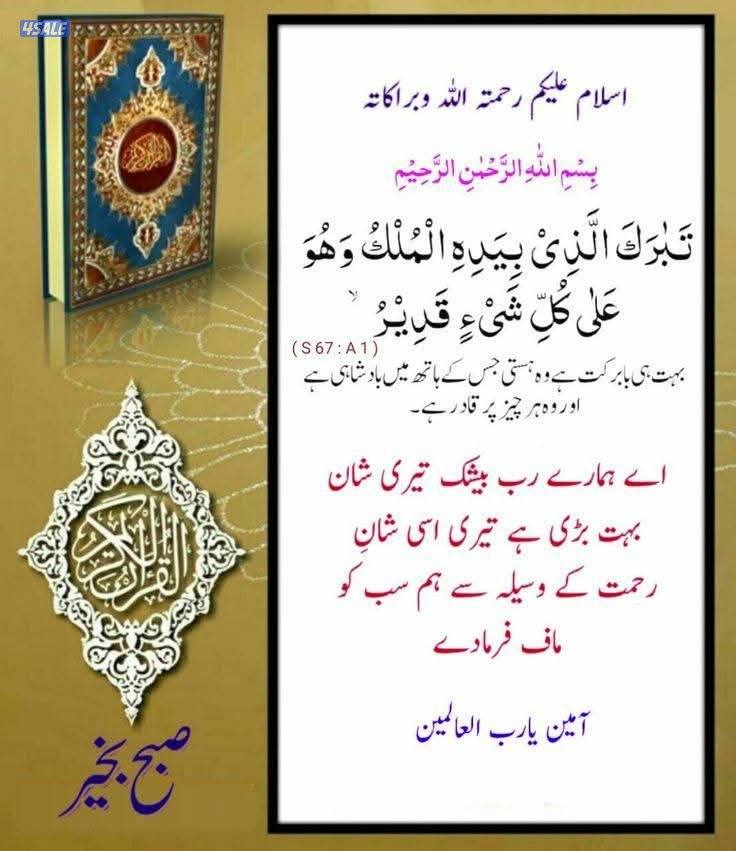 4SALE
اسلام علیکم رحمتہ اللہ وبراکاتہ
بِسْمِ اللّٰهِ الرَّحْمٰنِ الرَّحِيْمِ
تَبٰرَكَ الَّذِىْ بِيَدِهِ الْمُلْكُ وَهُوَ
عَلٰى كُلِّ شَىْءٍ قَدِيْرُ ۙ
( S 67 : A 1 )
بہت ہی بابرکت ہے وہ ہستی جس کے ہاتھ میں بادشاہی ہے
اور وہ ہر چیز پر قادر ہے۔
اے ہمارے رب بیشک تیری شان
بہت بڑی ہے تیری اسی شانِ
رحمت کے وسیلہ سے ہم سب کو
ماف فرمادے
آمین یارب العالمین
القرآن الكريم
القرآن الكريم
صبح بخیر